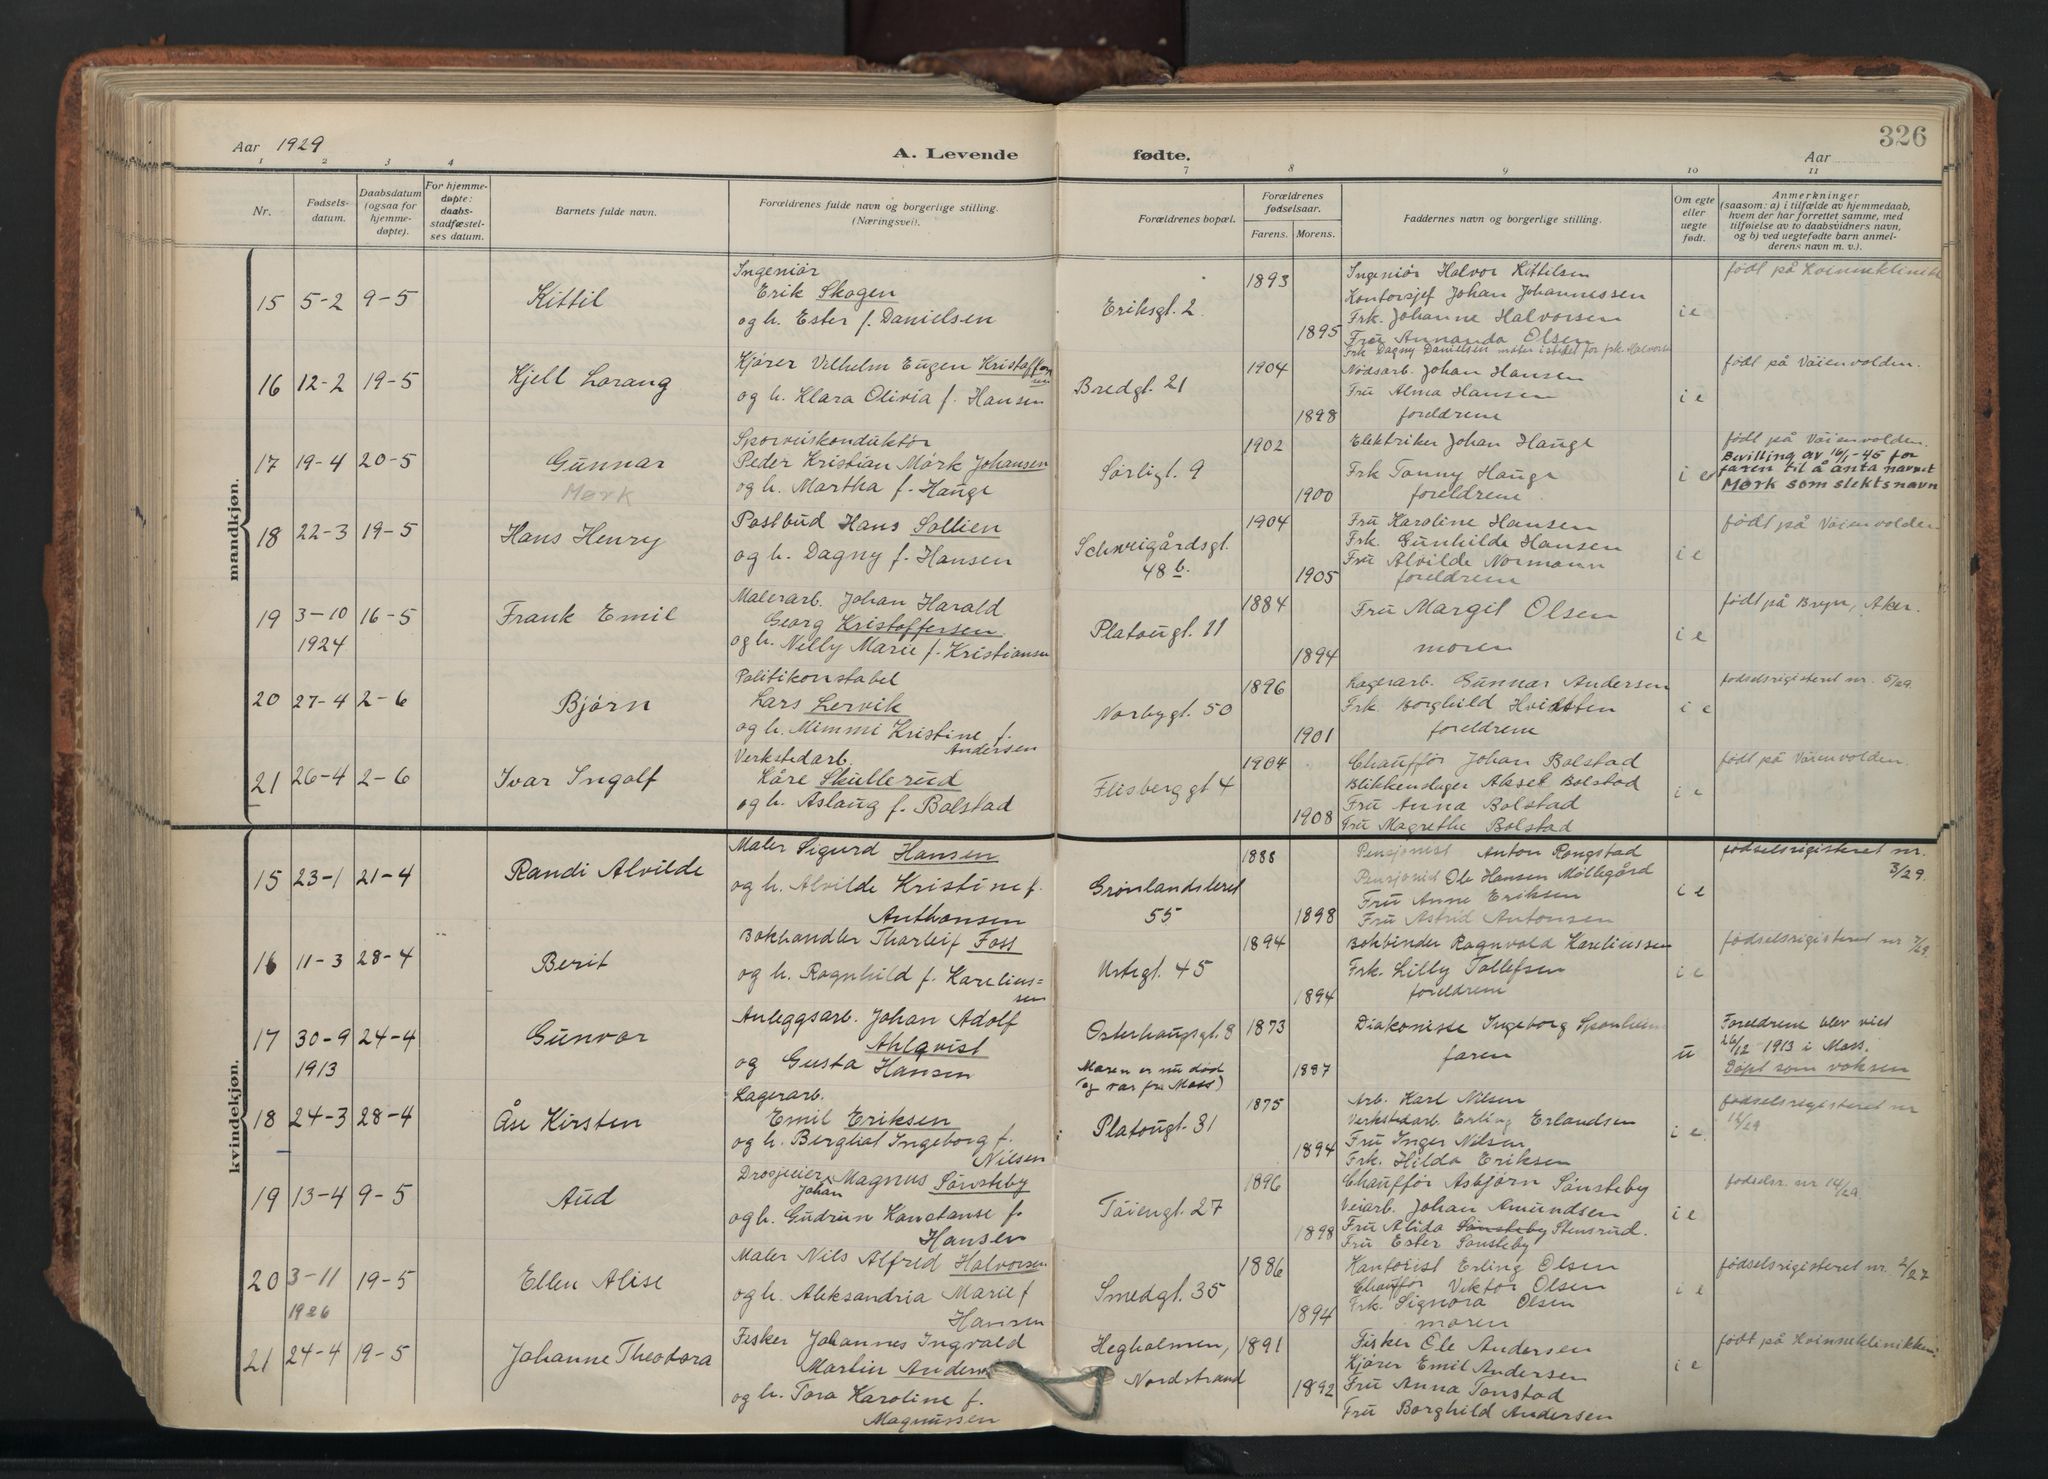 Aar 1929
A. Levende fødte.
Aar
326
1 2 3 4 7 8 9 10 11
Nr.
Fødsels-
datum.
Daabsdatum
(ogsaa for
hjemme-
døpte).
For hjemme-
døpte:
daabs-
stadfæstel-
ses datum.
Barnets fulde navn.
Forældrenes fulde navn og borgerlige stilling.
(Næringsvei).
Forældrenes bopæl.
Forældrenes
fødselsaar.
Farens. Morens.
Faddernes navn og borgerlige stilling.
Om egte
eller
uegte
født.
Anmerkninger
(saasom: a) i tilfælde av hjemmedaab,
hvem der har forrettet samme, med
tilføielse av to daabsvidners navn,
og b) ved uegtefødte barn anmel-
derens navn m. v.).
mandkjøn.
15 5-2 9-5 Kittil
Ingeniør
Erik Skogen
og h. Ester f. Danielsen
Eriksgt. 2
1893
1895
Ingeniør Halvor Kittilsen
Kontorsjef Johan Johannessen
Frk. Johanne Halvorsen
Fru Annanda Olsen
Frk Dagny Danielsen møter istedet for frk. Halvorsen
i e
født på Kvinneklinikk
16 12-2 19-5 Kjell Lorang
Kjører Vilhelm Eugen Kristoffer
sen
og h. Klara Olivia f. Hansen
Bredgt. 21
1904
1898
Nødsarb. Johan Hansen
Fru Alma Hansen
foreldrene
i e
født på Vøienvolden.
17 19-4 20-5 Gunnar
Mørk
Sporveiskonduktør
Peder Kristian Mørk Johansen
og h. Martha f. Hauge
Sørligt. 9
1902
1900
Elektriker Johan Hauge
Frk Tonny Hauge
foreldrene
i e
født på Vøienvolden.
Bevilling av 16/1-45 for
faren til å anta navnet
Mørk som slektsnavn
18 22-3 19-5 Hans Henry
Postbud Hans Sollien
og h. Dagny f. Hansen
Schweigårdsgt.
48 b.
1904
1905
Fru Karoline Hansen
Frk. Gunhilde Hansen
Fru Alvilde Normann
foreldrene
i e
født på Vøienvolden
19 3-10 16-5 Frank Emil
1924
Malerarb. Johan Harald
Georg Kristoffersen
og h. Nelly Marie f. Kristiansen
Platougt. 11
1884
1894
Fru Margit Olsen
moren
i e
født på Bryn, Aker.
20 27-4 2-6 Bjørn
Politikonstabel
Lars Lervik
og h. Mimmi Kristine f.
Andersen
Norbygt. 50
1896
1901
Lagerarb. Gunnar Andersen
Frk. Borghild Hvidsten
foreldrene
i e
fødselsregisteret nr. 5/29.
21 26-4 2-6 Ivar Ingolf
Verkstedarb.
Kåre Skullerud
og h. Aslaug f. Bolstad
Flisberggt 4
1904
1908
Chauffør Johan Bolstad
Blikkenslager Aksel Bolstad
Fru Anna Bolstad
Fru Magrethe Bolstad
i e
født på Vøienvolden.
kvindekjøn.
15 23-1 21-4 Randi Alvilde
Maler Sigurd Hansen
og h. Alvilde Kristine f.
Anthonsen
Grønlandsleret
55
1888
1898
Pensjonist Anton Rongstad
Pensjonist Ole Hansen Møllegård
Fru Anne Eriksen
Fru Astrid Antonsen
i e
fødselsregisteret nr.
3/29.
16 11-3 28-4 Berit
Bokhandler Thorleif Foss
og h. Ragnhild f. Karelius-
sen
Urtegt. 45
1894
1894
Bokbinder Ragnvold Kareliussen
Frk. Lilly Tollefsen
foreldrene
i e
fødselsregisteret nr 7/29.
17 30-9 24-4 Gunvor
1913
Anleggsarb. Johan Adolf
Ahlqvist
og Gusta Hansen
Osterhausgt. 8
Moren er nu død
(og var fra Moss)
1873
1887
Diakonisse Ingeborg Sponheim
faren
u
Foreldrene blev viet
26/12 1913 i Moss.
Døpt som voksen
18 24-3 28-4 Åse Kirsten
Lagerarb.
Emil Eriksen
og h. Bergliot Ingeborg f.
Nilsen
Platougt. 31
1875
1894
Arb. Karl Nilsen
Verkstedarb. Erling Erlandsen
Fru Inger Nilsen
Frk. Hilda Eriksen
i e
fødselsregisteret nr
12/29
19 13-4 9-5 Aud
Drosjeeier Magnus Sønsteby
Johan
og h. Gudrun Konstanse f.
Hansen
Tøiengt. 27
1896
1898
Chauffør Asbjørn Sønsteby
Veiarb. Johan Amundsen
Fru Alida Sønsteby Stensrud.
Fru Ester Sønsteby
i e
fødselsr. nr 14/29.
20 3-11 19-5 Ellen Alise
1926
Maler Nils Alfred Halvorsen
og h. Aleksandria Marie f
Hansen
Smedgt. 35
1886
1894
Kontorist Erling Olsen
Chauffør Viktor Olsen
Frk. Signora Olsen
moren
i e
fødselsregisteret nr. 2/27
21 24-4 19-5 Johanne Theodora
Fisker Johannes Ingvald
Martin Anders
og h. Tora Karoline f.
Magnussen
Hegholmen,
Nordstrand
1891
1892
Fisker Ole Andersen
Kjører Emil Andersen
Fru Anna Tonstad
Fru Borghild Andersen
i e
født på Kvinneklinikken.